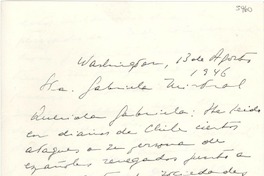 Washington, 13 de Agosto
1946
Sta. Gabriela Mistral
Querida Gabriela: He leido
en diarios de Chile ciertos
ataques a su persona de
españoles renegados junto a